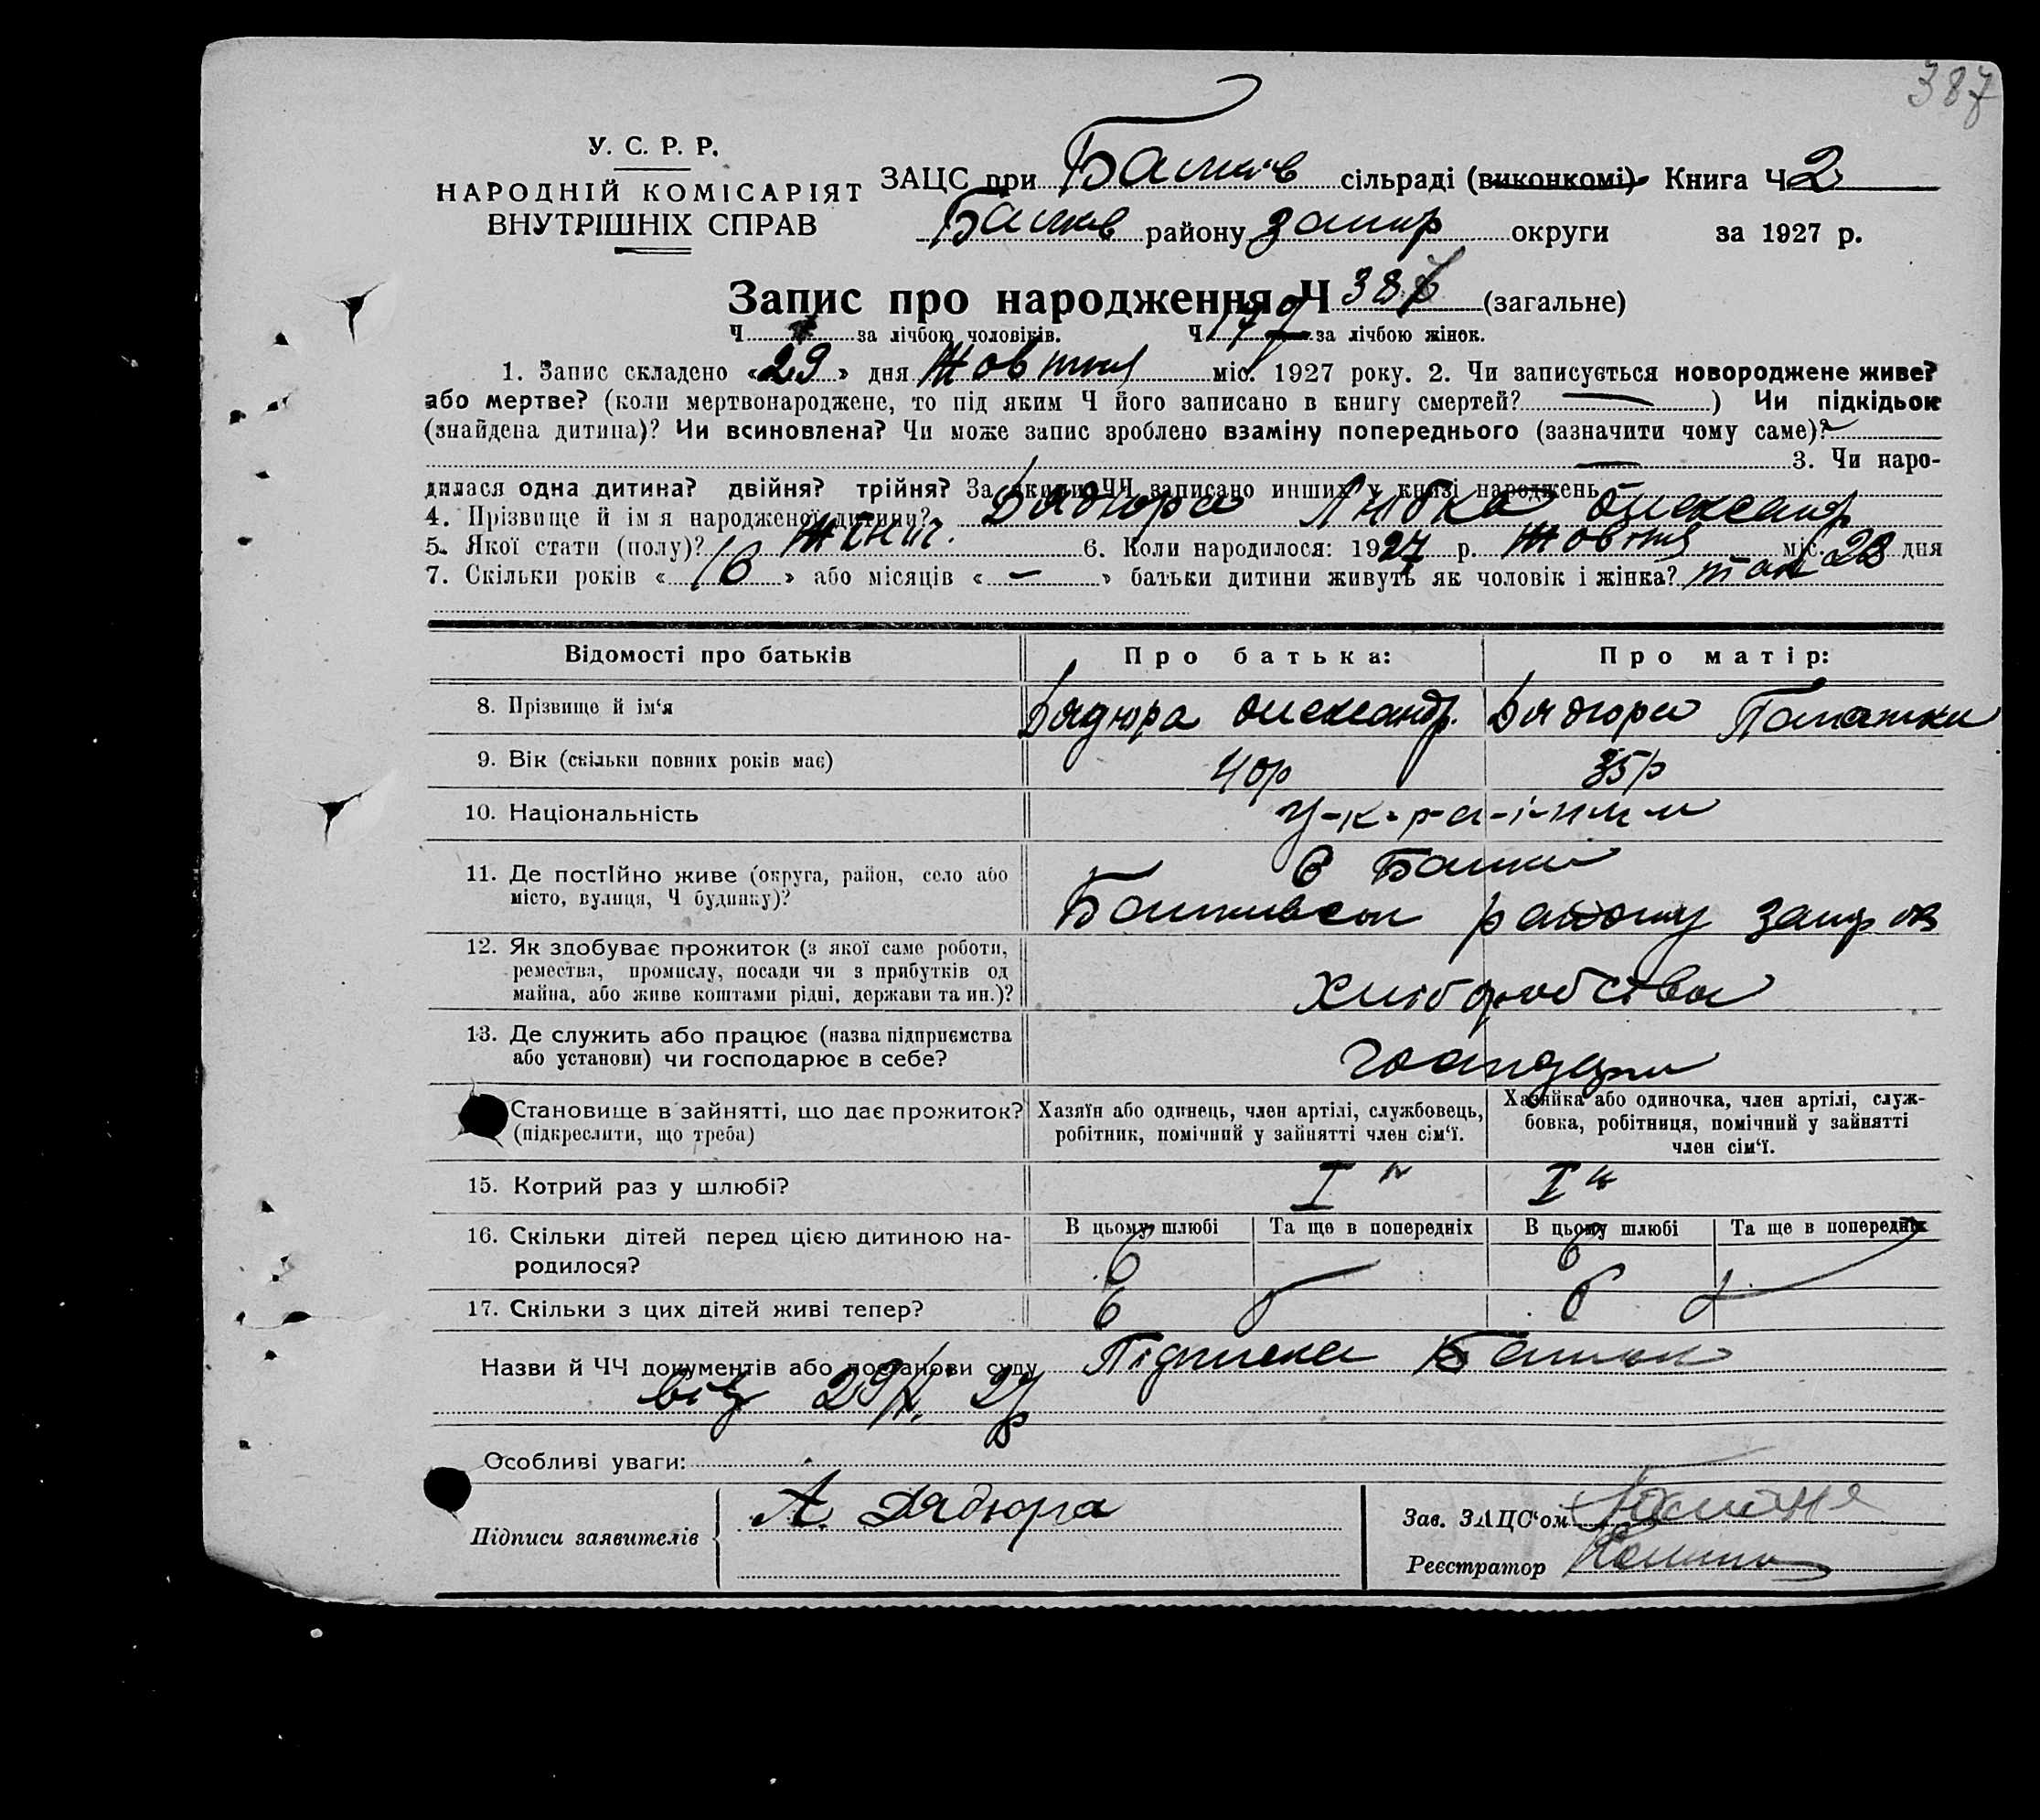 387
У. С. Р. Р.
НАРОДНІЙ КОМІСАРІЯТ
ВНУТРІШНІХ СПРАВ
ЗАЦС при Балків сільраді (виконкомі) Книга Ч 2
Балків району Запор округи за 1927 р.
Запис про народження Ч 387 (загальне)
Ч за лічбою чоловіків. Ч 179 за лічбою жінок.
1. Запис складено «29» дня Жовтня міс. 1927 року. 2. Чи записується новороджене живе?
або мертве? (коли мертвонароджене, то під яким Ч його записано в книгу смертей? —) Чи підкідьок
(знайдена дитина)? Чи всиновлена? Чи може запис зроблено взаміну попереднього (зазначити чому саме)?
— 3. Чи наро-
дилася одна дитина? двійня? трійня? За якими ЧЧ записано инших у книзі народжень —
4. Прізвище й ім я народженої дитини? Дядюра Любка Олександр
5. Якої стати (полу)? жіноч. 6. Коли народилося: 1927 р. Жовтня міс. 28 дня
7. Скільки років «16» або місяців «—» батьки дитини живуть як чоловік і жінка? так
Відомості про батьків Про батька: Про матір:
8. Прізвище й ім‘я Дядюра Олександр. Дядюра
9. Вік (скільки повних років має) 40р 35р
10. Національність У-к-р-а-ї-н
11. Де постійно живе (округа, район, село або
місто, вулиця, Ч будинку)?
с Балки
району Запор ок
12. Як здобуває прожиток (з якої саме роботи,
ремества, промислу, посади чи з прибутків од
майна, або живе коштами рідні, держави та ин.)?
Хліборобства
13. Де служить або працює (назва підприємства
або установи) чи господарює в себе?
Становище в зайнятті, що дає прожиток?
(підкреслити, що треба)
Хазяїн або одинець, член артілі, службовець,
робітник, помічний у зайнятті член сім‘ї.
Хазяйка або одиночка, член артілі, служ-
бовка, робітниця, помічний у зайнятті
член сім‘ї.
15. Котрий раз у шлюбі? I й I й
16. Скільки дітей перед цією дитиною на-
родилося?
В цьому шлюбі Та ще в попередніх В цьому шлюбі Та ще в попередніх
6 — 6 —
17. Скільки з цих дітей живі тепер? 6 6
Назви й ЧЧ документів або постанови суду Підписка Батька
від 29/X. 27р
Особливі уваги:
Підписи заявителів
А. Дядюра
Зав. ЗАЦС‘ом
Реєстратор